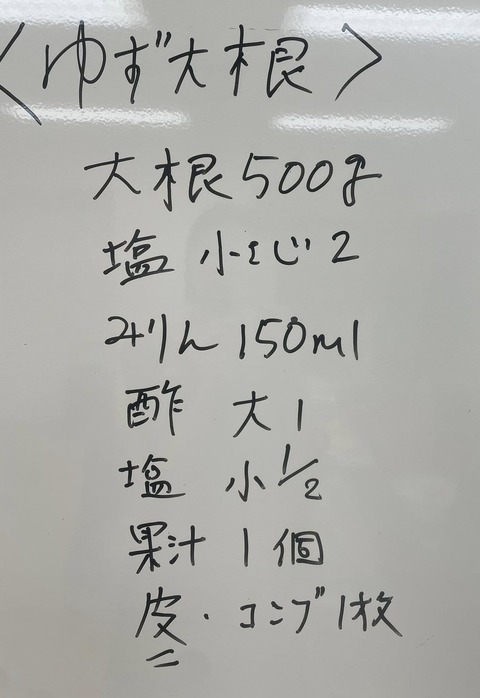 〈ゆず大根〉
大根500g
塩 小さじ2
みりん150ml
酢 大1
塩 小1/2
果汁 1個
皮・コンブ1枚